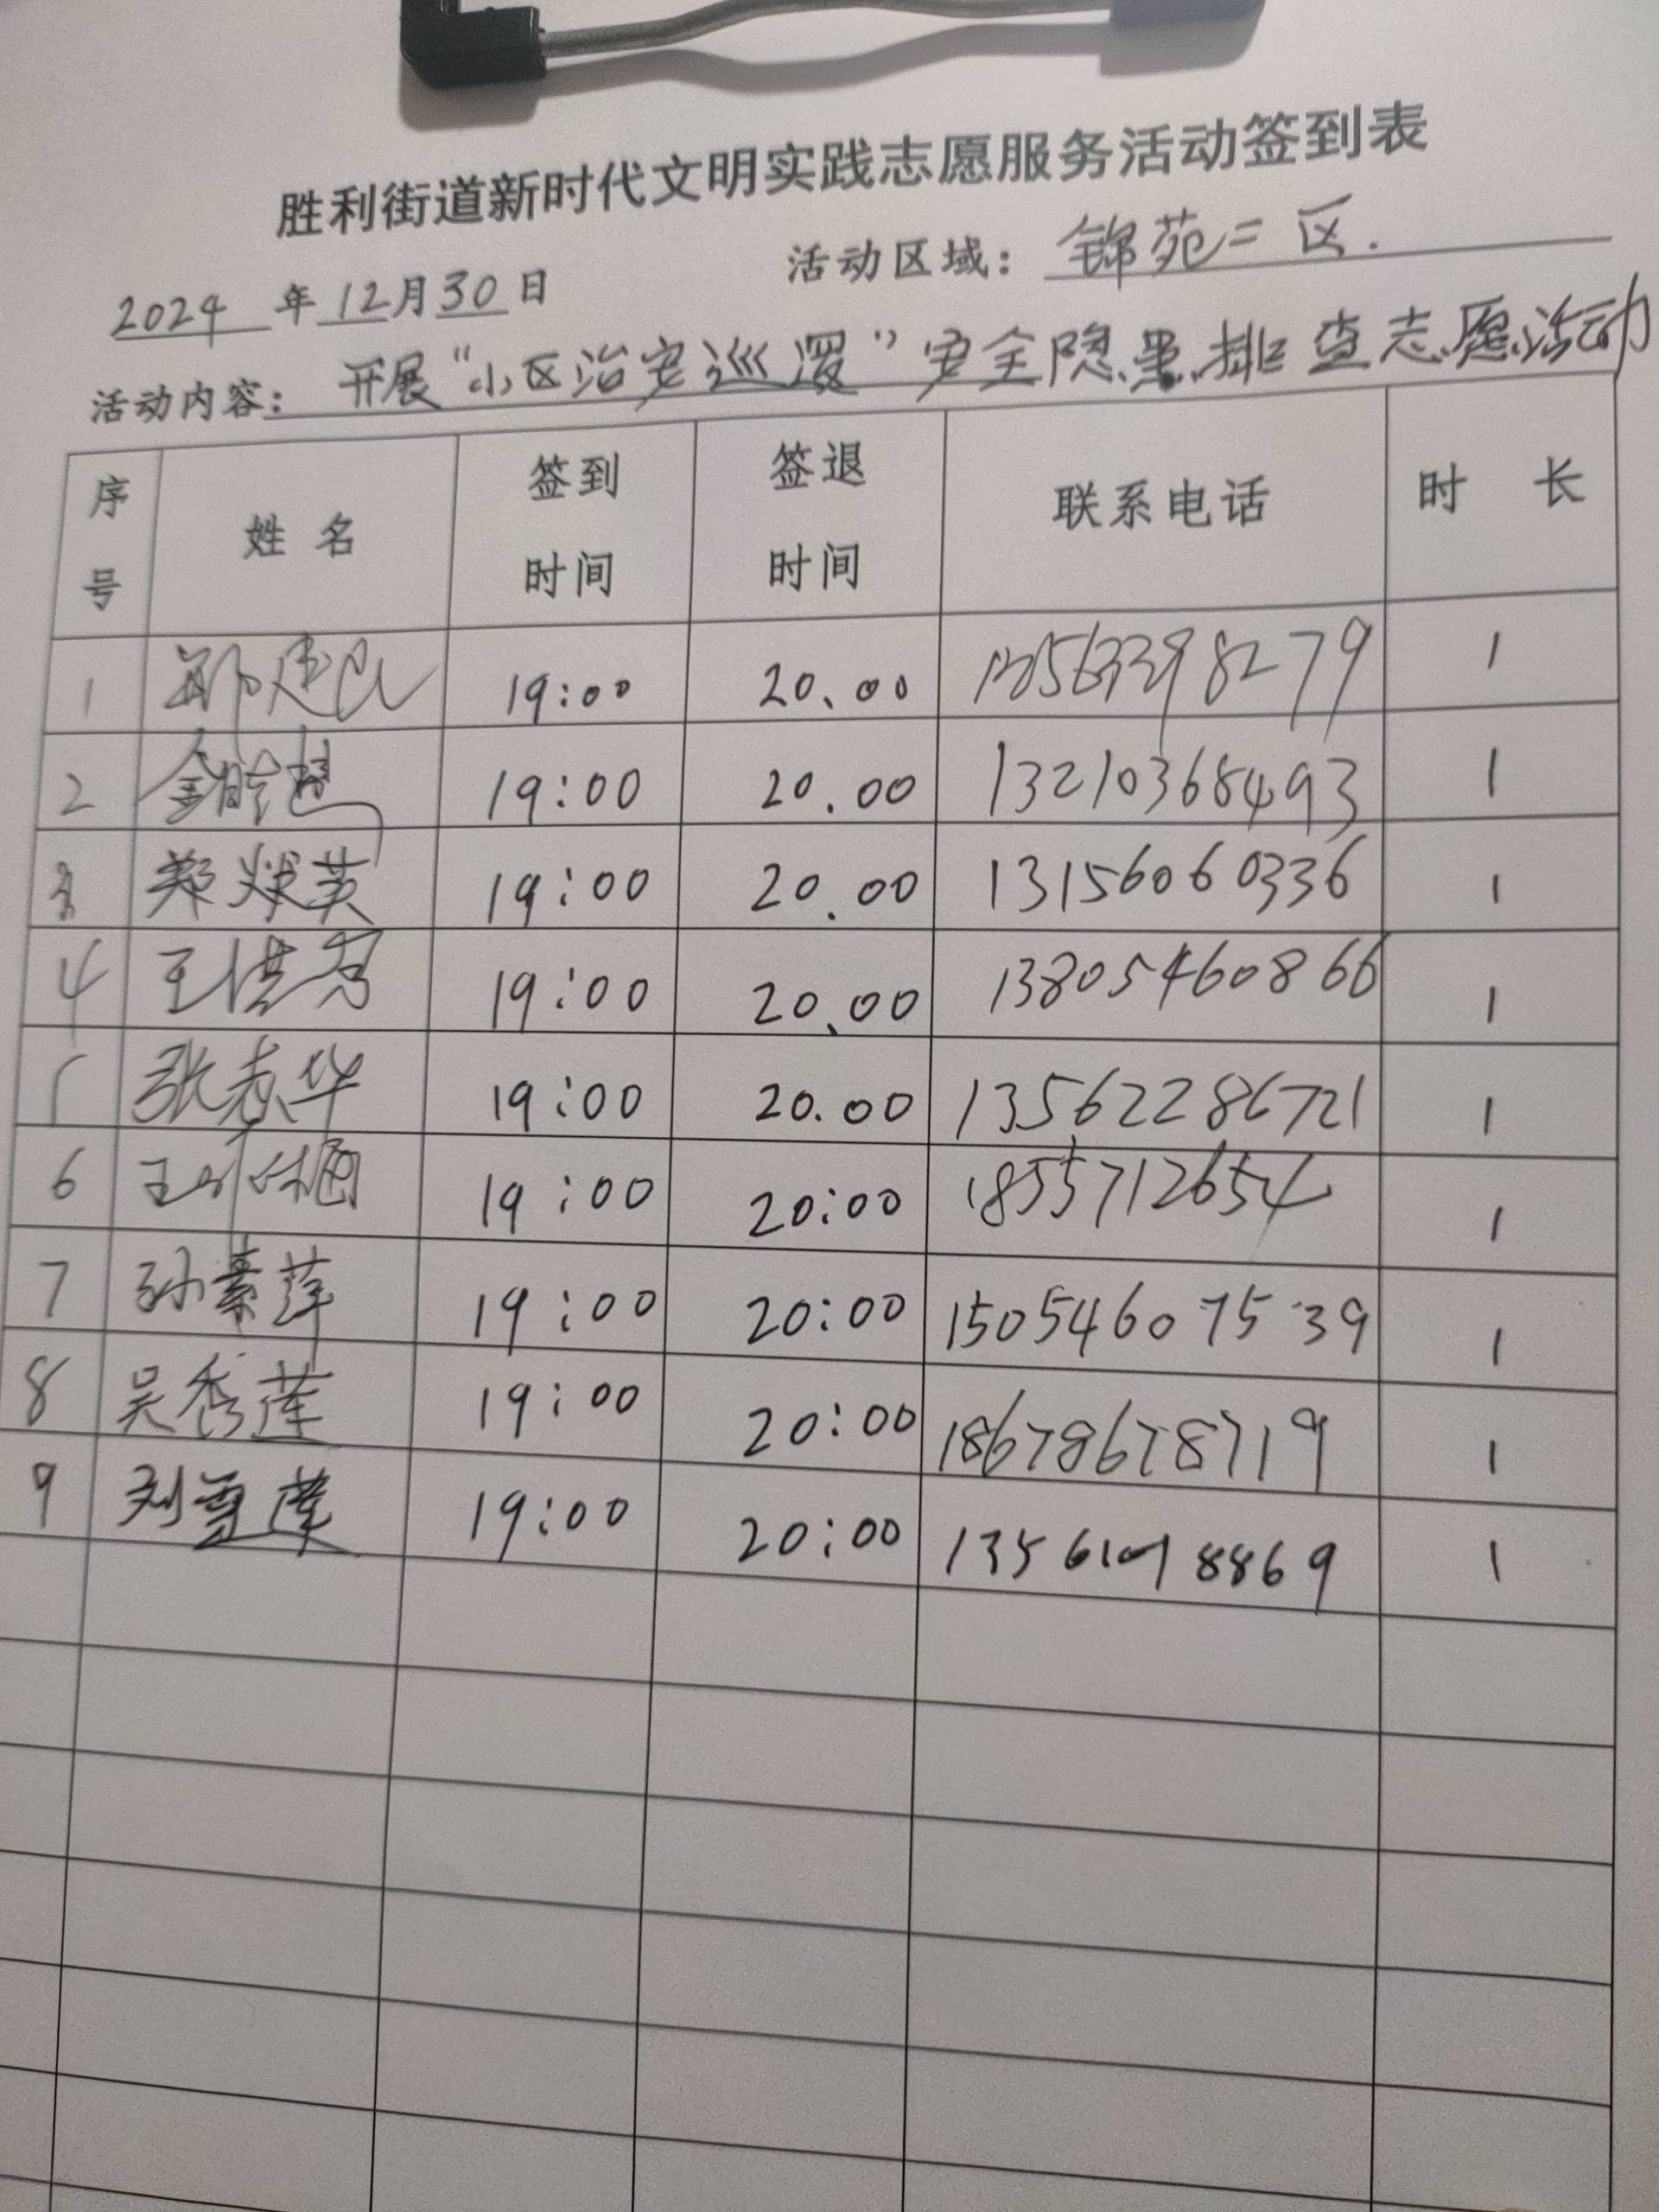 胜利街道新时代文明实践志愿服务活动签到表
2024 年 12 月 30 日 活动区域: 锦苑二区.
活动内容: 开展“小区治安巡逻”安全隐患排查志愿活动
序号 姓名 签到时间 签退时间 联系电话 时长
1 19:00 20.00 1
2 19:00 20.00 13210368493 1
3 郑焕英 19:00 20.00 13156060336 1
4 19:00 20.00 13805460866 1
5 张志华 19:00 20.00 13562286721 1
6 19:00 20:00 1
7 孙素莲 19:00 20:00 15054607539 1
8 吴秀莲 19:00 20:00 18678678719 1
9 刘雪莲 19:00 20:00 1